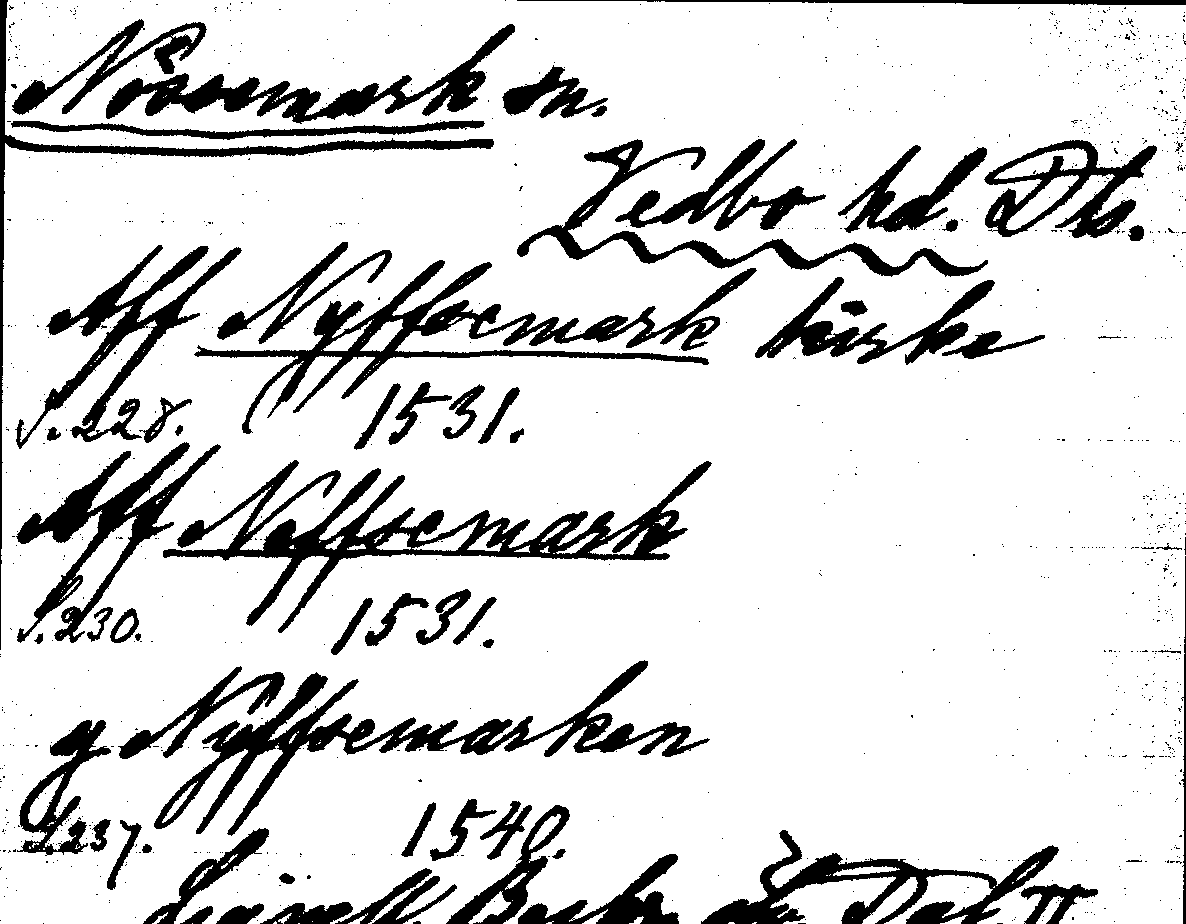 Nössemark sn.
Vedbo hd. Dls.
Aff Nyffsemark kirke
S. 228. 1531.
Aff Neffsemark
S. 230. 1531.
y Nÿffsemarken
S. 237. 1540.
Dal II